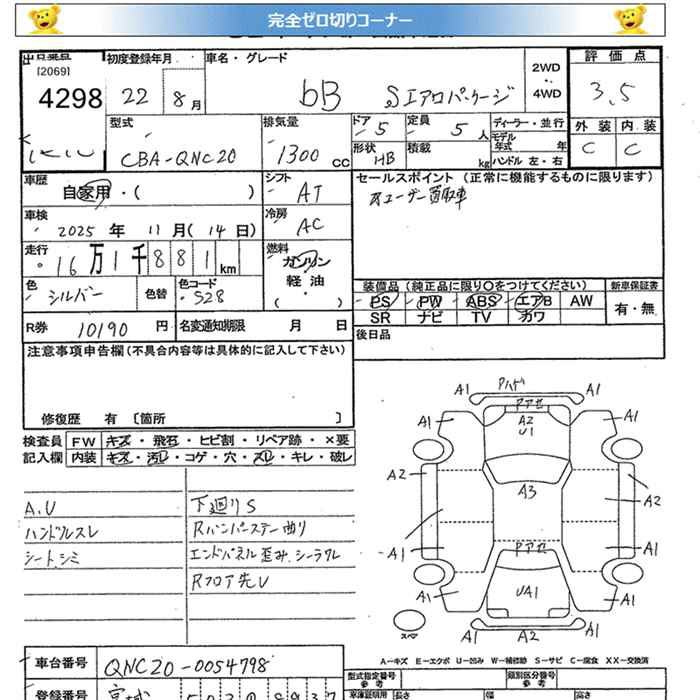 完全ゼロ切りコーナー
[2069]
4298
初度登録年月
22 8月
車名・グレード
bB Sエアロパッケージ
2WD
4WD
評価点
3.5
外装 内装
C C
型式
CBA-QNC20
排気量
1300 cc
ドア 5
定員 5 人
形状 HB
積載 kg
ディーラー・並行
モデル年式 年
ハンドル 左・右
車歴
自家用・( )
シフト
AT
セールスポイント (正常に機能するものに限ります)
車検
2025 年 11 月(14日)
冷房
AC
走行
16万1千881km
燃料
ガソリン
軽・油
( )
色
シルバー
色替
色コード
S28
装備品 (純正品に限り〇をつけてください)
新車保証書
PS PW ABS エアB AW
SR ナビ TV カワ
有・無
R券 10190 円
名変通知期限 月 日
後日品
注意事項申告欄 (不具合内容等は具体的に記入して下さい)
修復歴 有 [箇所 ]
検査員
記入欄
FW キズ・飛石・ヒビ割・リペア跡・×要
内装 キズ・汚レ・コゲ・穴・スレ・キレ・破レ
A.U
ハンドルスレ
シートシミ
下廻りS
Rバンパーステー曲り
エンドパネル歪み.シーラワレ
Rフロア先U
A1 A1
Pアセ
A1 A2 A1
U1
A2 A3 A2
A1 A1
Pアセ
A1 UA1 A1
A1 A2 A1
スペア
A-キズ E-エクボ U-凹み W-補修跡 S-サビ C-腐食 XX-交換済
車台番号 QNC20-0054798
型式指定番号
参考
類別区分番号
参考
登録番号 宮城
長さ 幅 高さ